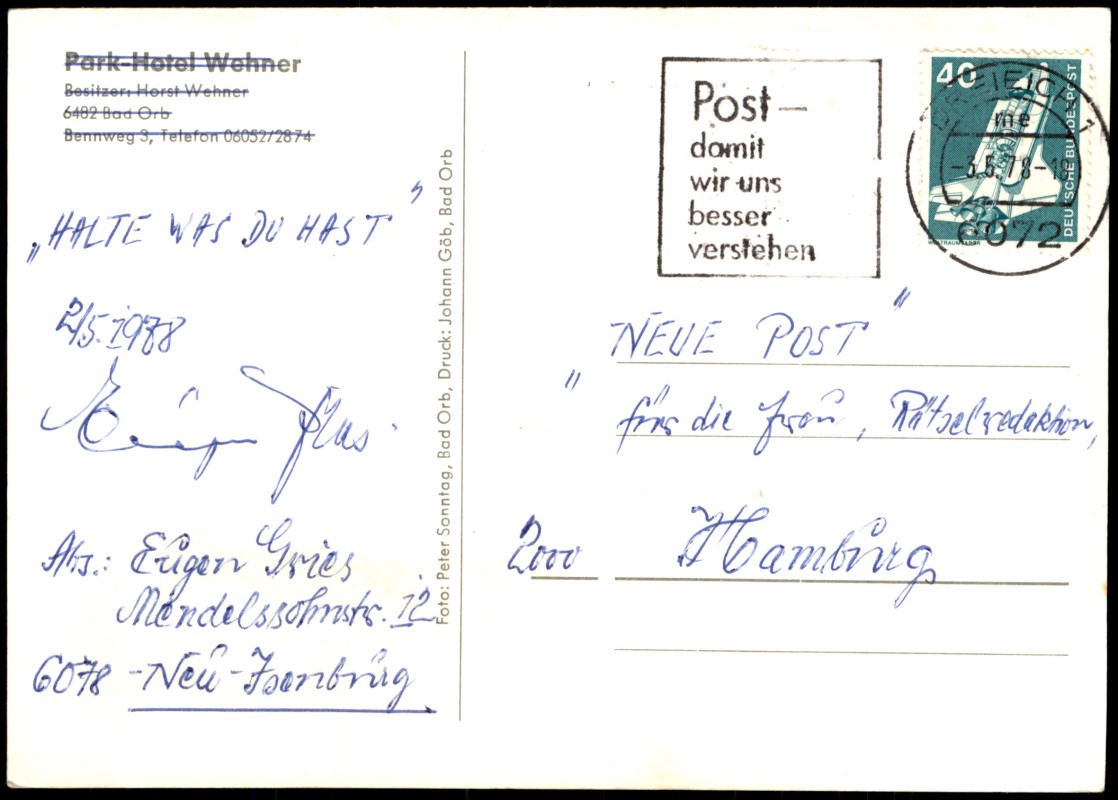 Park-Hotel Wehner
Besitzer: Horst Wehner
6482 Bad Orb
Bennweg 3, Telefon 06052/2874
„HALTE WAS DU HAST"
2/5.1978
Abs.: Eugen Gries
Mendelssohnstr. 12
6078 -Neu-Isenburg
Foto: Peter Sonntag, Bad Orb, Druck: Johann Göb, Bad Orb
Post–
damit
wir uns
besser
verstehen
40
DEUTSCHE BUNDESPOST
WELTRAUMLABOR
DREIEICH 1
me
-3.5.78-18
6072
"NEUE POST"
für die Frau, Rätselredaktion,
2000 Hamburg